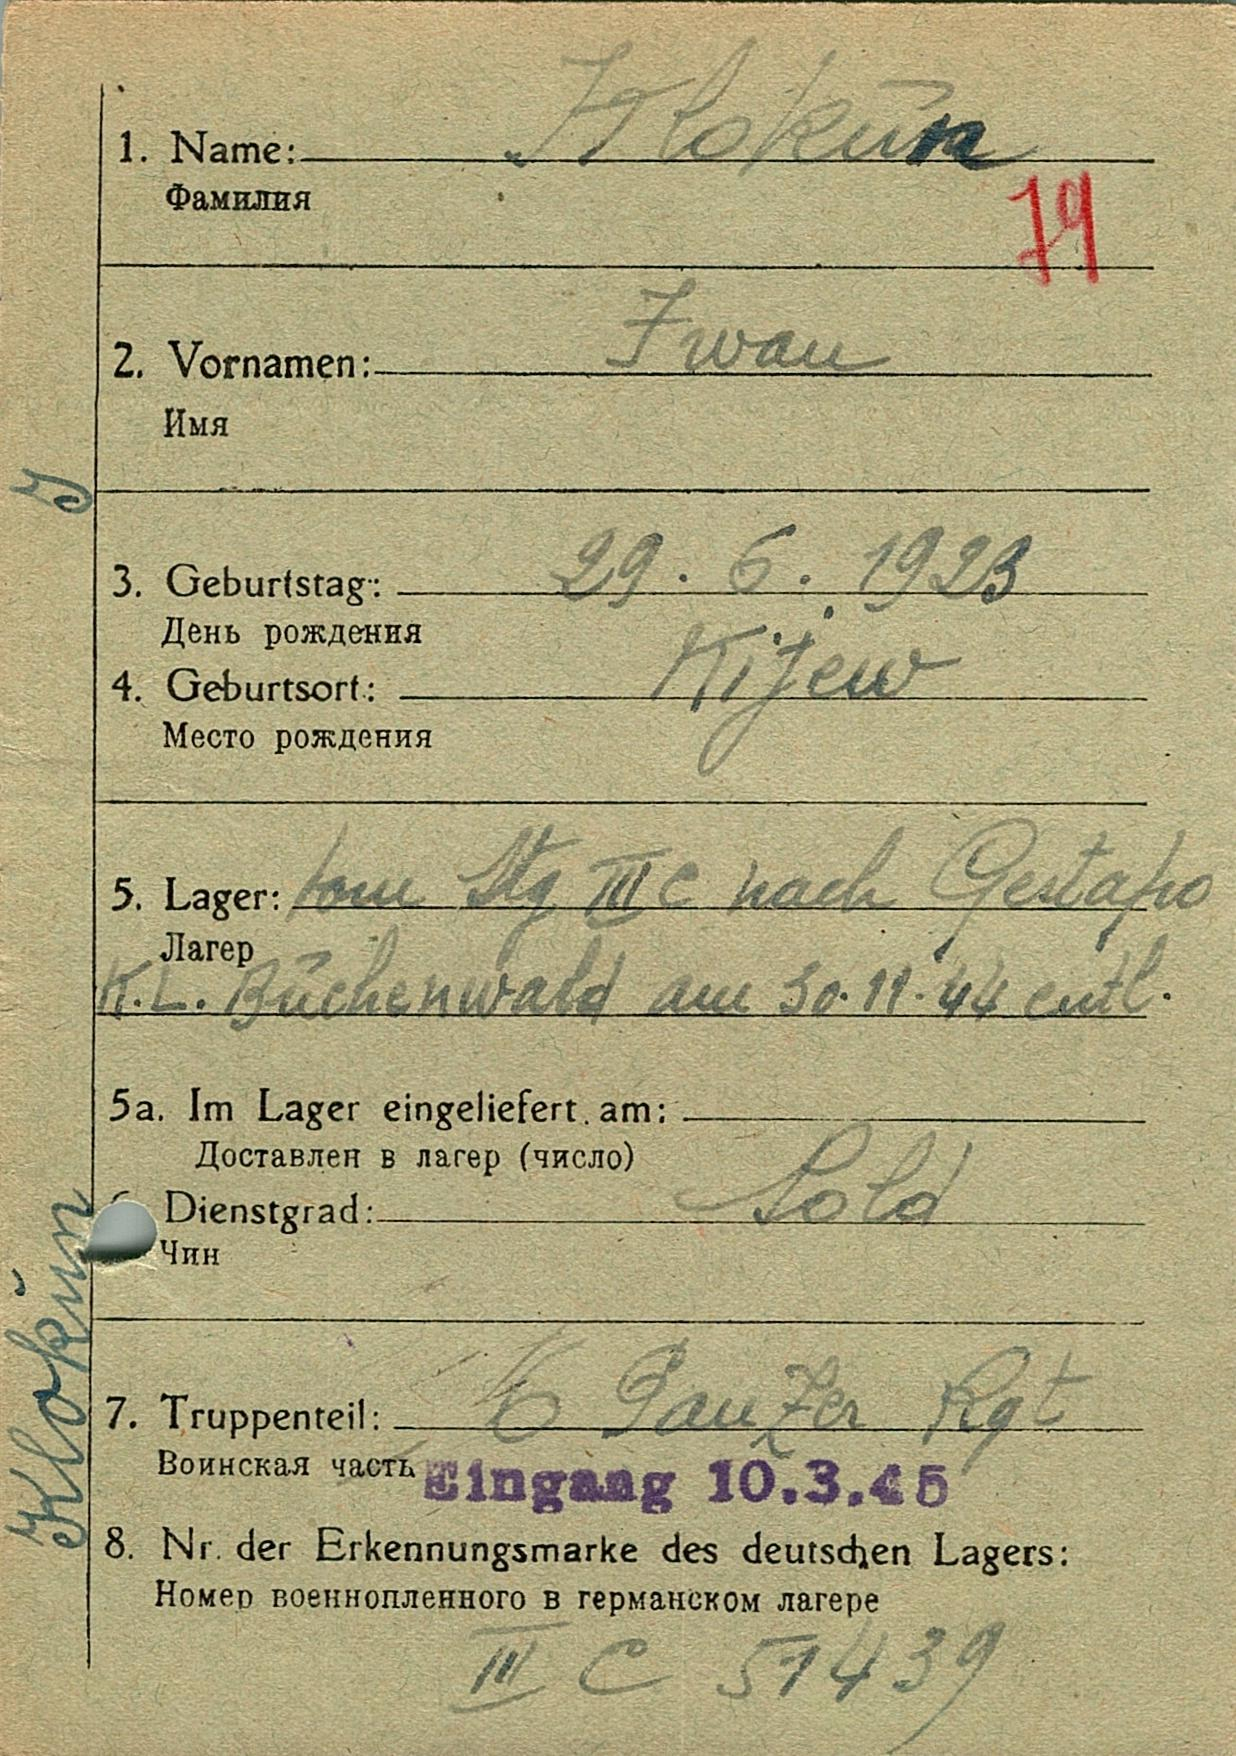 1. Name: Klokun
Фамилия
79
2. Vornamen: Iwan
Имя
3. Geburtstag: 29. 6. 1923
День рождения
4. Geburtsort: Kijew
Место рождения
5. Lager: vom Stg III C nach Gestapo
Лагер
K.L. Buchenwald am 30.11.44 entl.
5a. Im Lager eingeliefert am:
Доставлен в лагер (число)
6. Dienstgrad: Sold
Чин
7. Truppenteil: 6 Panzer Rgt
Воинская часть
Eingang 10.3.45
8. Nr. der Erkennungsmarke des deutschen Lagers:
Номер военнопленного в германском лагере
III C 51439
Klokun